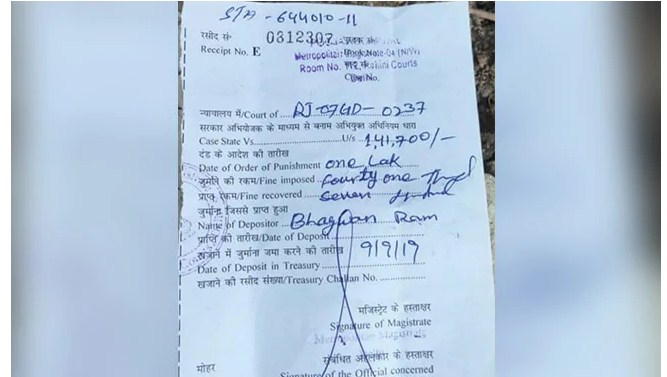 STA - 644010-11
रसीद सं॰ 0312307
Receipt No. E
Metropolitan Magistrate-04 (N/W)
Room No. 112, Rohini Courts
न्यायालय में/Court of RJ-07GD-0237
सरकार अभियोजक के माध्यम से बनाम अभियुक्त अधिनियम धारा
Case State Vs. U/s 1,41,700/-
दंड के आदेश की तारीख
Date of Order of Punishment one Lak
जुर्माने की रकम/Fine imposed Fourty one
प्राप्त रकम/Fine recovered Seven
जुर्माना जिससे प्राप्त हुआ
Name of Depositor Bhagwan Ram
प्राप्ति की तारीख/Date of Deposit
खजाने में जुर्माना जमा करने की तारीख 9/9/19
Date of Deposit in Treasury
खजाने की रसीद संख्या/Treasury Challan No.
मजिस्ट्रेट के हस्ताक्षर
Signature of Magistrate
Metropolitan Magistrate
संबंधित अहलकार के हस्ताक्षर
मोहर Signature of the Official concerned